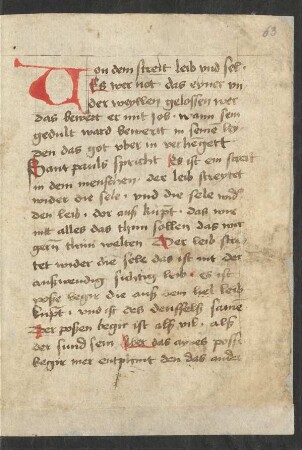 63
Von dem streit leib und sel .
Es wer not das eyner un
der weyllen gelossen wer
das bewert er mit Job . wann sein
gedult ward bewerit in seine ley
den das got uber in verhengett
Sant pauls spricht Es ist ein streit
in dem menschen . der leib streytet
wider die sele . und die sele wid
den leib . dor auß kupt . das wir
nit alles das thun sollen das wir
gern thun welten Der leib strei
tet wider die sele das ist nit der
außwendig sichtig leib . es ist
poße begir die auß dem leib
kupt . und ist des deuffelß same
Der poßen begir ist alß vil . alß
der sund sein Aber das aynes poß
begir mer entpint den das ander